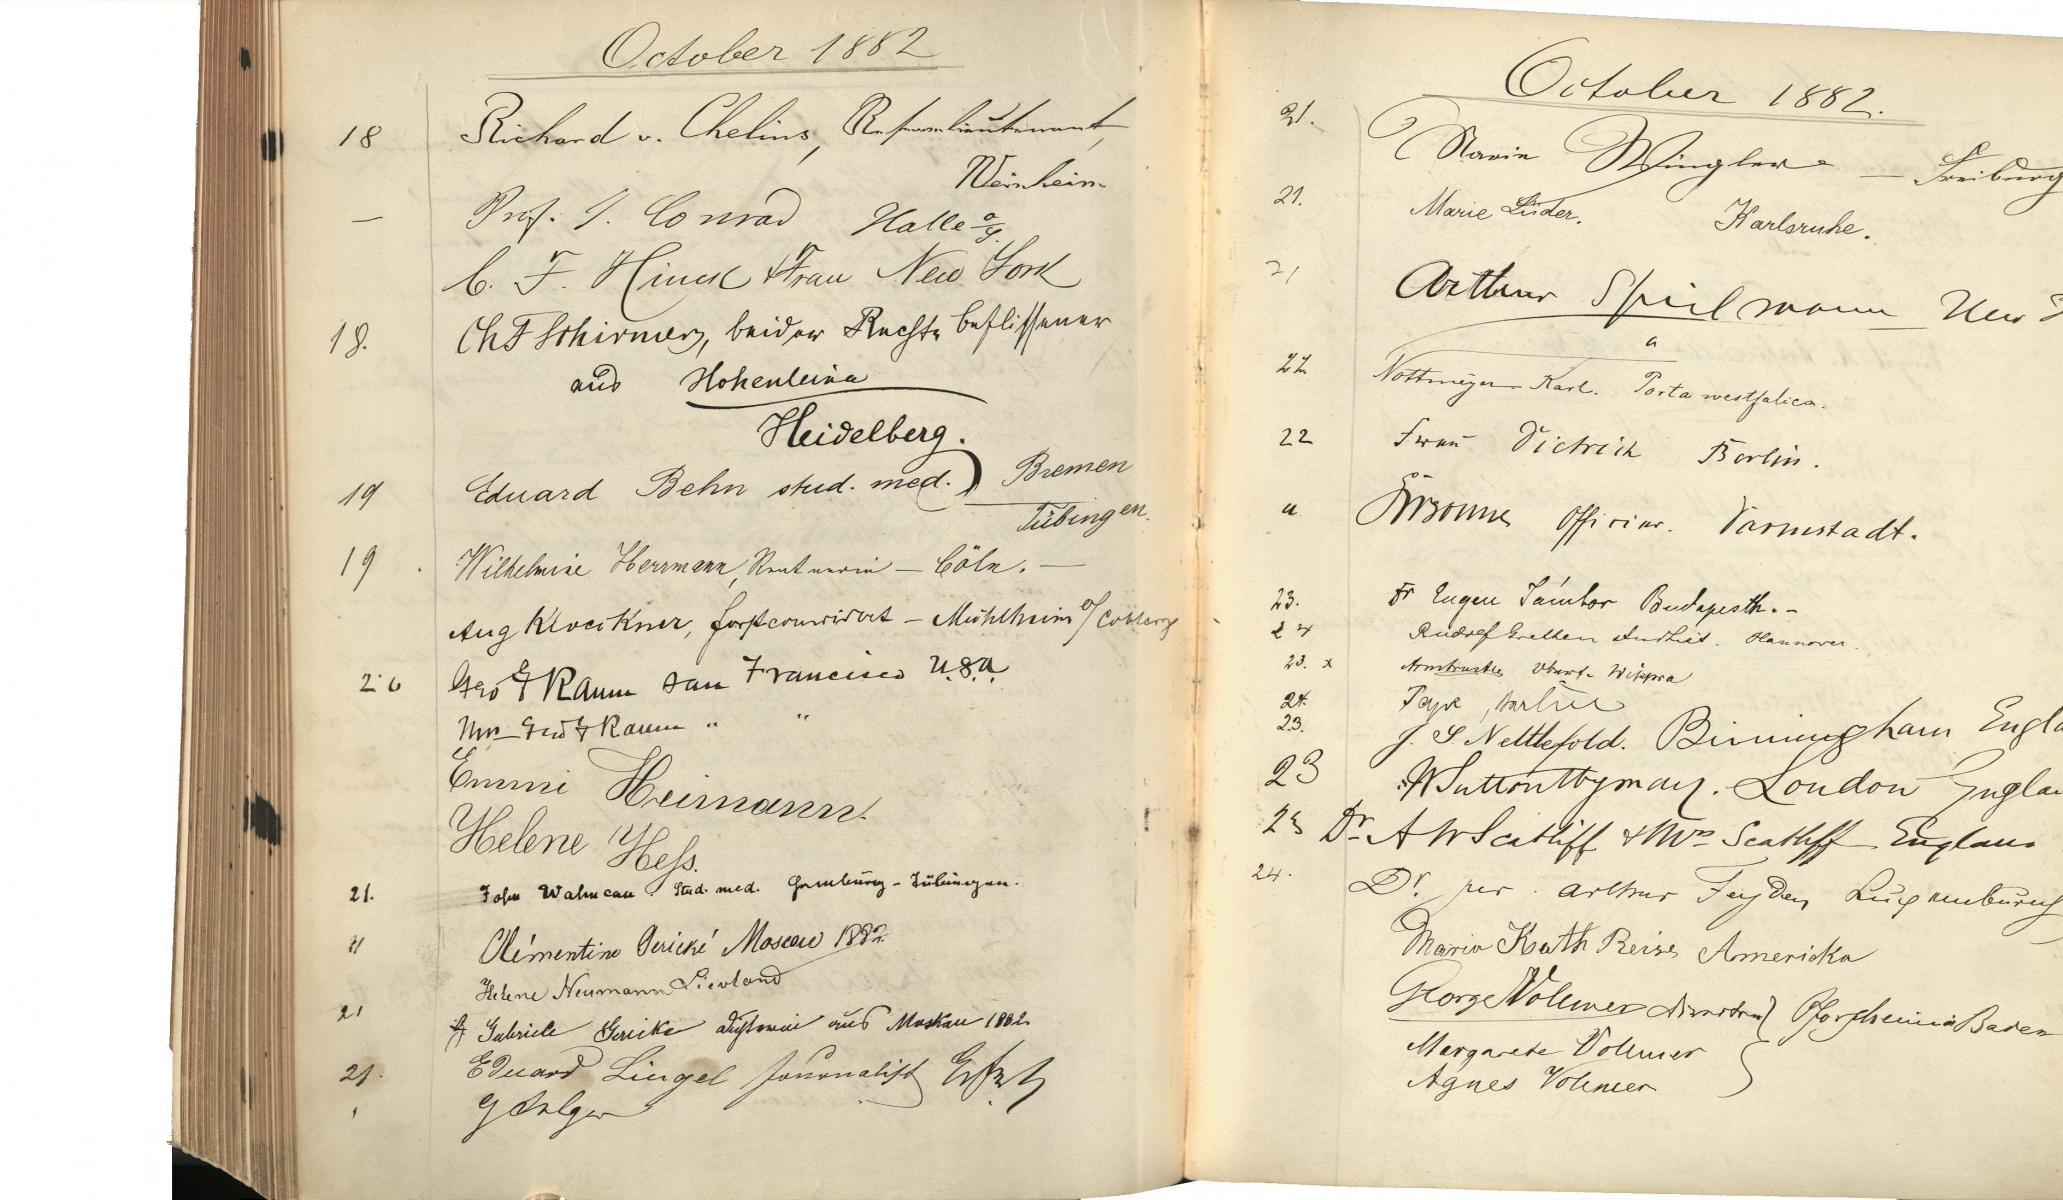 October 1882
18 Richard v. Chelius, Reservelieutenant,
Weinheim
— Prof. J. Conrad Halle a/S.
C. F. Hinck & Frau New York
18. Ch F Schirmer, beider Rechte beflissener
aus Hohenleina
Heidelberg.
19 Eduard Behn stud. med. Bremen
Tübingen.
19 Wilhelmine Herrmann, Rentnerin — Cöln. —
Aug Kloeckner, – Mühlheim a/ Coblenz
20 Geo E Raum San Francisco U.S.A.
Mrs Geo E Raum " "
Emmi Heimann.
Helene Hess.
21. John Stud. med. Hamburg - Tübingen.
11 Clémentine Gerické Moscou 1882
Helene Neumann Livland
21 Gabriele Gericke aus Moskau 1882
21. Eduard Lingel Journalist
October 1882.
21. Marie Wingler — Freiburg
21. Marie Lüder. Karlsruhe.
21 Arthur Spielmann New
a
22 Nottmeyer Karl. Porta westfalica.
22 Frau Dietrich Berlin.
a Officier. Darmstadt.
23. Dr Eugen Budapesth. -
24 Rudolf Hannover.
23. x Wippra
24.
23. J. S. Nettlefold. Birmingham Engla
23 London Englan
23 Dr A W Scatliff & Mrs Scatliff England
24. Dr. jur. Arthur Feyden Luxemburg
Maria Kath Reiss Amerika
George Vollmer Pforzheim Baden
Margarete Vollmer
Agnes Vollmer